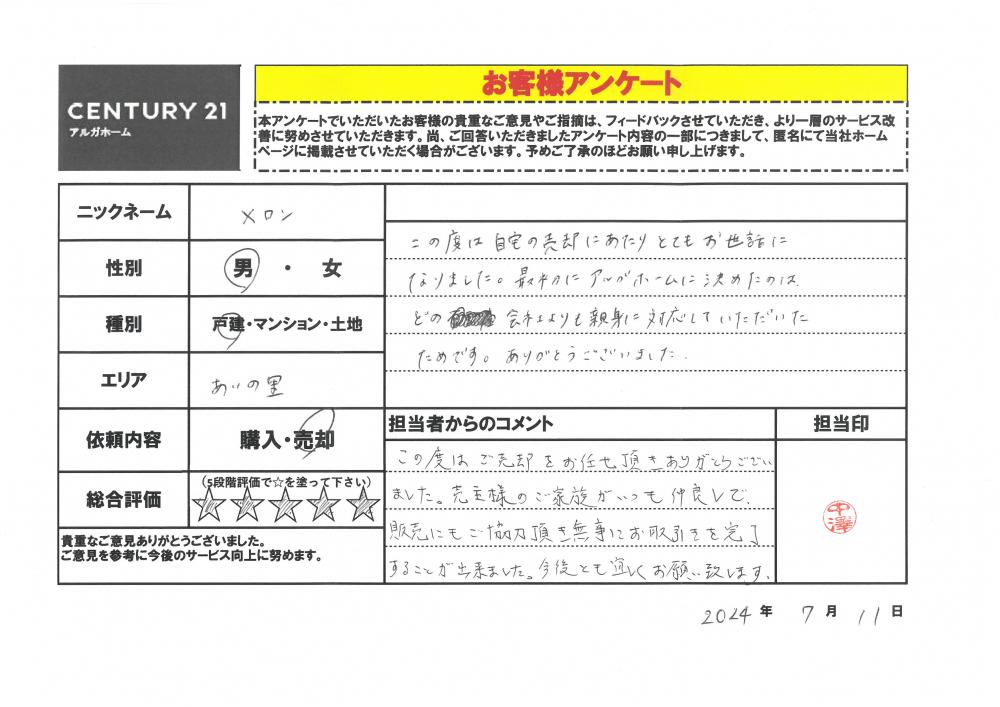 CENTURY 21
アルガホーム
お客様アンケート
本アンケートでいただいたお客様の貴重なご意見やご指摘は、フィードバックさせていただき、より一層のサービス改
善に努めさせていただきます。尚、ご回答いただきましたアンケート内容の一部につきまして、匿名にて当社ホーム
ページに掲載させていただく場合がございます。予めご了承のほどお願い申し上げます。
ニックネーム
メロン
性別
男・女
種別
戸建・マンション・土地
エリア
あいの里
依頼内容
購入・売却
総合評価
(5段階評価で☆を塗って下さい)
貴重なご意見ありがとうございました。
ご意見を参考に今後のサービス向上に努めます。
この度は自宅の売却にあたりとてもお世話に
なりました。最初にアルガホームに決めたのは
どの会社よりも親身に対応していただいた
ためです。ありがとうございました.
担当者からのコメント
この度はご売却をお任せ頂きありがとうござい
ました。売主様のご家族がいつも仲良しで、
販売にもご協力頂き無事にお取引きを完了
することが出来ました。今後とも宜しくお願い致します。
担当印
中澤
2024年7月11日